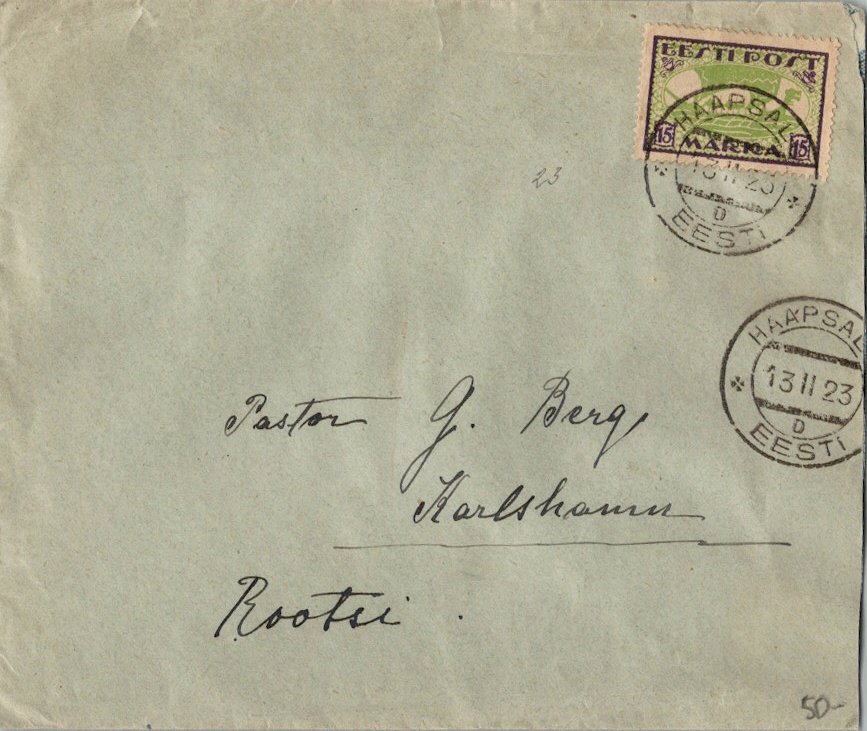 EESTI POST
15 MARKA 15
HAAPSAL
13 II 23
D
EESTI
23
HAAPSAL
13 II 23
D
EESTI
Pastor G. Berg,
Karlshamn
Rootsi.
50-